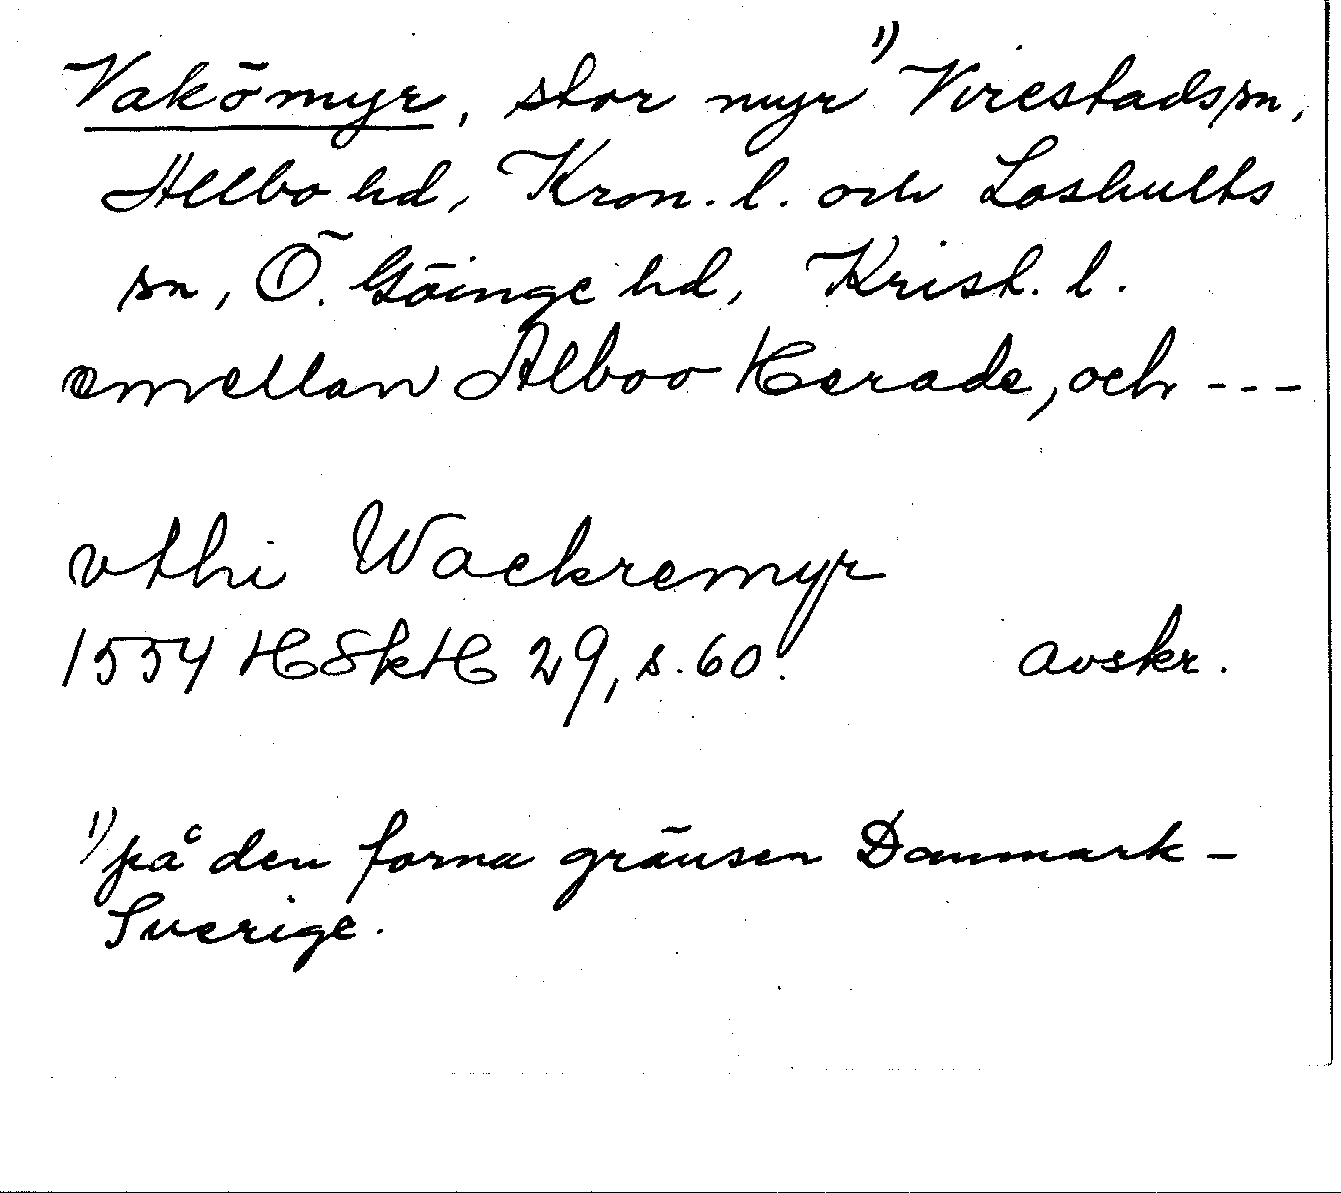 Vakömyr, stor myr ¹⁾ Virestads sn,
Allbo hd, Kron. l. och Loshults
sn, Ö. Göinge hd, Krist. l.
emellan Alboo Herade, och ---
vthi Wackremyr
1554 HSkH 29, s. 60. avskr.
¹⁾ på den forna gränsen Danmark -
Sverige.